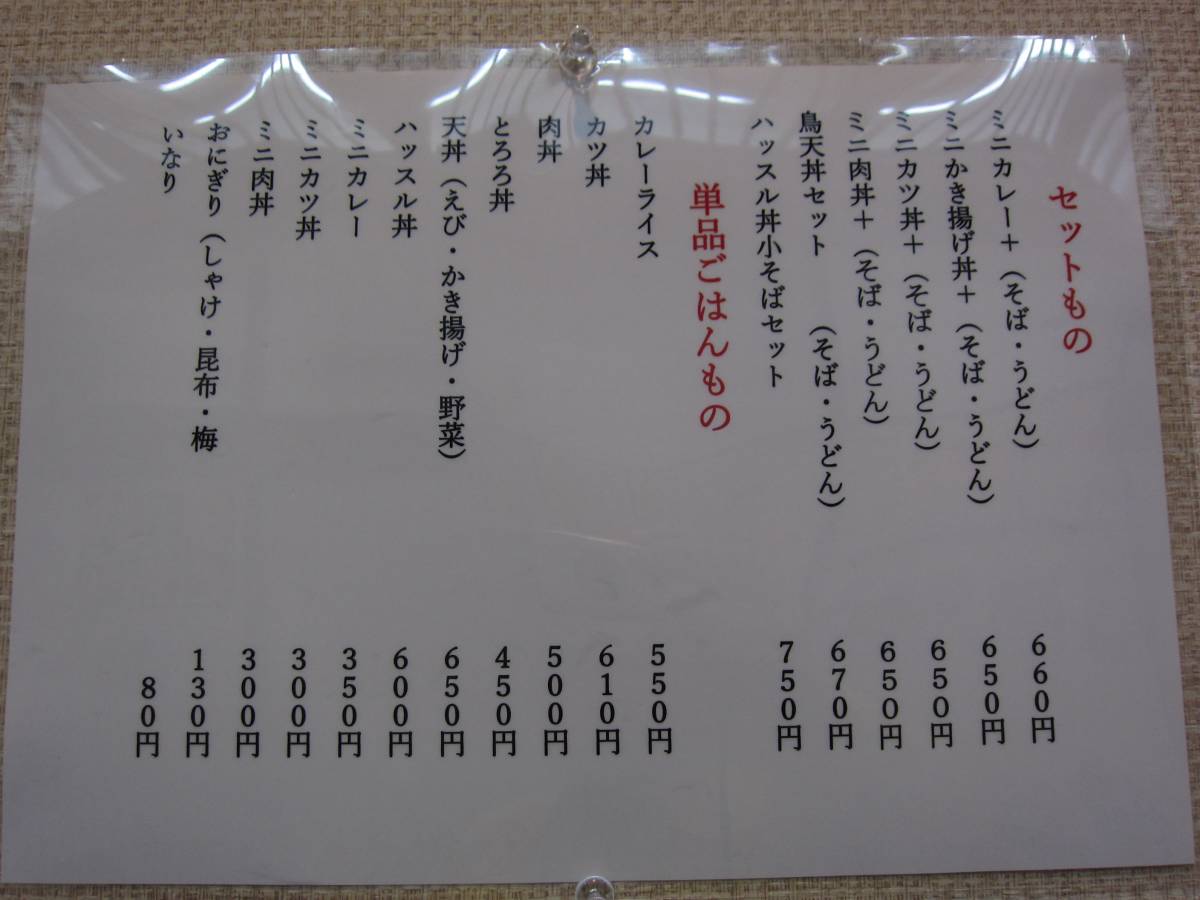 セットもの
ミニカレー＋（そば・うどん） 660円
ミニかき揚げ丼＋（そば・うどん） 650円
ミニカツ丼＋（そば・うどん） 650円
ミニ肉丼＋（そば・うどん） 650円
鳥天丼セット （そば・うどん） 670円
ハッスル丼小そばセット 750円
単品ごはんもの
カレーライス 550円
カツ丼 610円
肉丼 500円
とろろ丼 450円
天丼（えび・かき揚げ・野菜） 650円
ハッスル丼 600円
ミニカレー 350円
ミニカツ丼 300円
ミニ肉丼 300円
おにぎり（しゃけ・昆布・梅 130円
いなり 80円